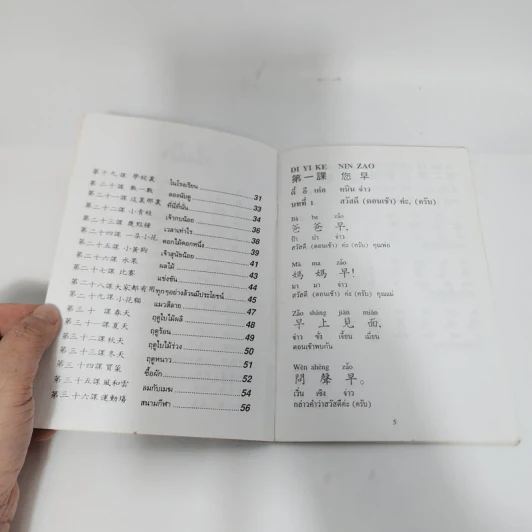 第十九課 學校裏 ในโรงเรียน 31
第二十課 數一數 ลองนับดู 33
第二十一課 這裏那裏 ที่นี่ที่นั่น 34
第二十二課 小青蛙 เจ้ากบน้อย 36
第二十三課 幾點鐘 เวลาเท่าไร 38
第二十四課 一朵小花 ดอกไม้ดอกหนึ่ง 39
第二十五課 小黃狗 เจ้าสุนัขน้อย
第二十六課 水果 ผลไม้
第二十七課 比賽 แข่งขัน
第二十八課 大家都有用 ทุกๆอย่างล้วนมีประโยชน์ 45
第二十九課 小花貓 แมวสีลาย 47
第三十課 春天 ฤดูใบไม้ผลิ 48
第三十一課 夏天 ฤดูร้อน 49
第三十二課 秋天 ฤดูใบไม้ร่วง 50
第三十三課 冬天 ฤดูหนาว 51
第三十四課 買菜 ซื้อผัก 52
第三十五課 風和雲 ลมกับเมฆ 54
第三十六課 運動場 สนามกีฬา 56
DI YI KE NIN ZAO
第一課 您早
ตี้ อี เค่อ หนิน จ่าว
บทที่ 1 สวัสดี (ตอนเช้า) ค่ะ, (ครับ)
Bà ba zǎo
爸爸早,
ป้า ปา จ่าว
สวัสดี (ตอนเช้า) ค่ะ (ครับ) คุณพ่อ
Mā ma zǎo
媽媽早!
มา มา จ่าว
สวัสดี (ตอนเช้า) ค่ะ (ครับ) คุณแม่
Zǎo shàng jiàn miàn
早上見面,
จ่าว ซั่ง เจี้ยน เมี่ยน
ตอนเช้าพบกัน
Wèn shēng zǎo
問聲早。
เวิ่น เซิง จ่าว
กล่าวคำว่าสวัสดีค่ะ (ครับ)
5